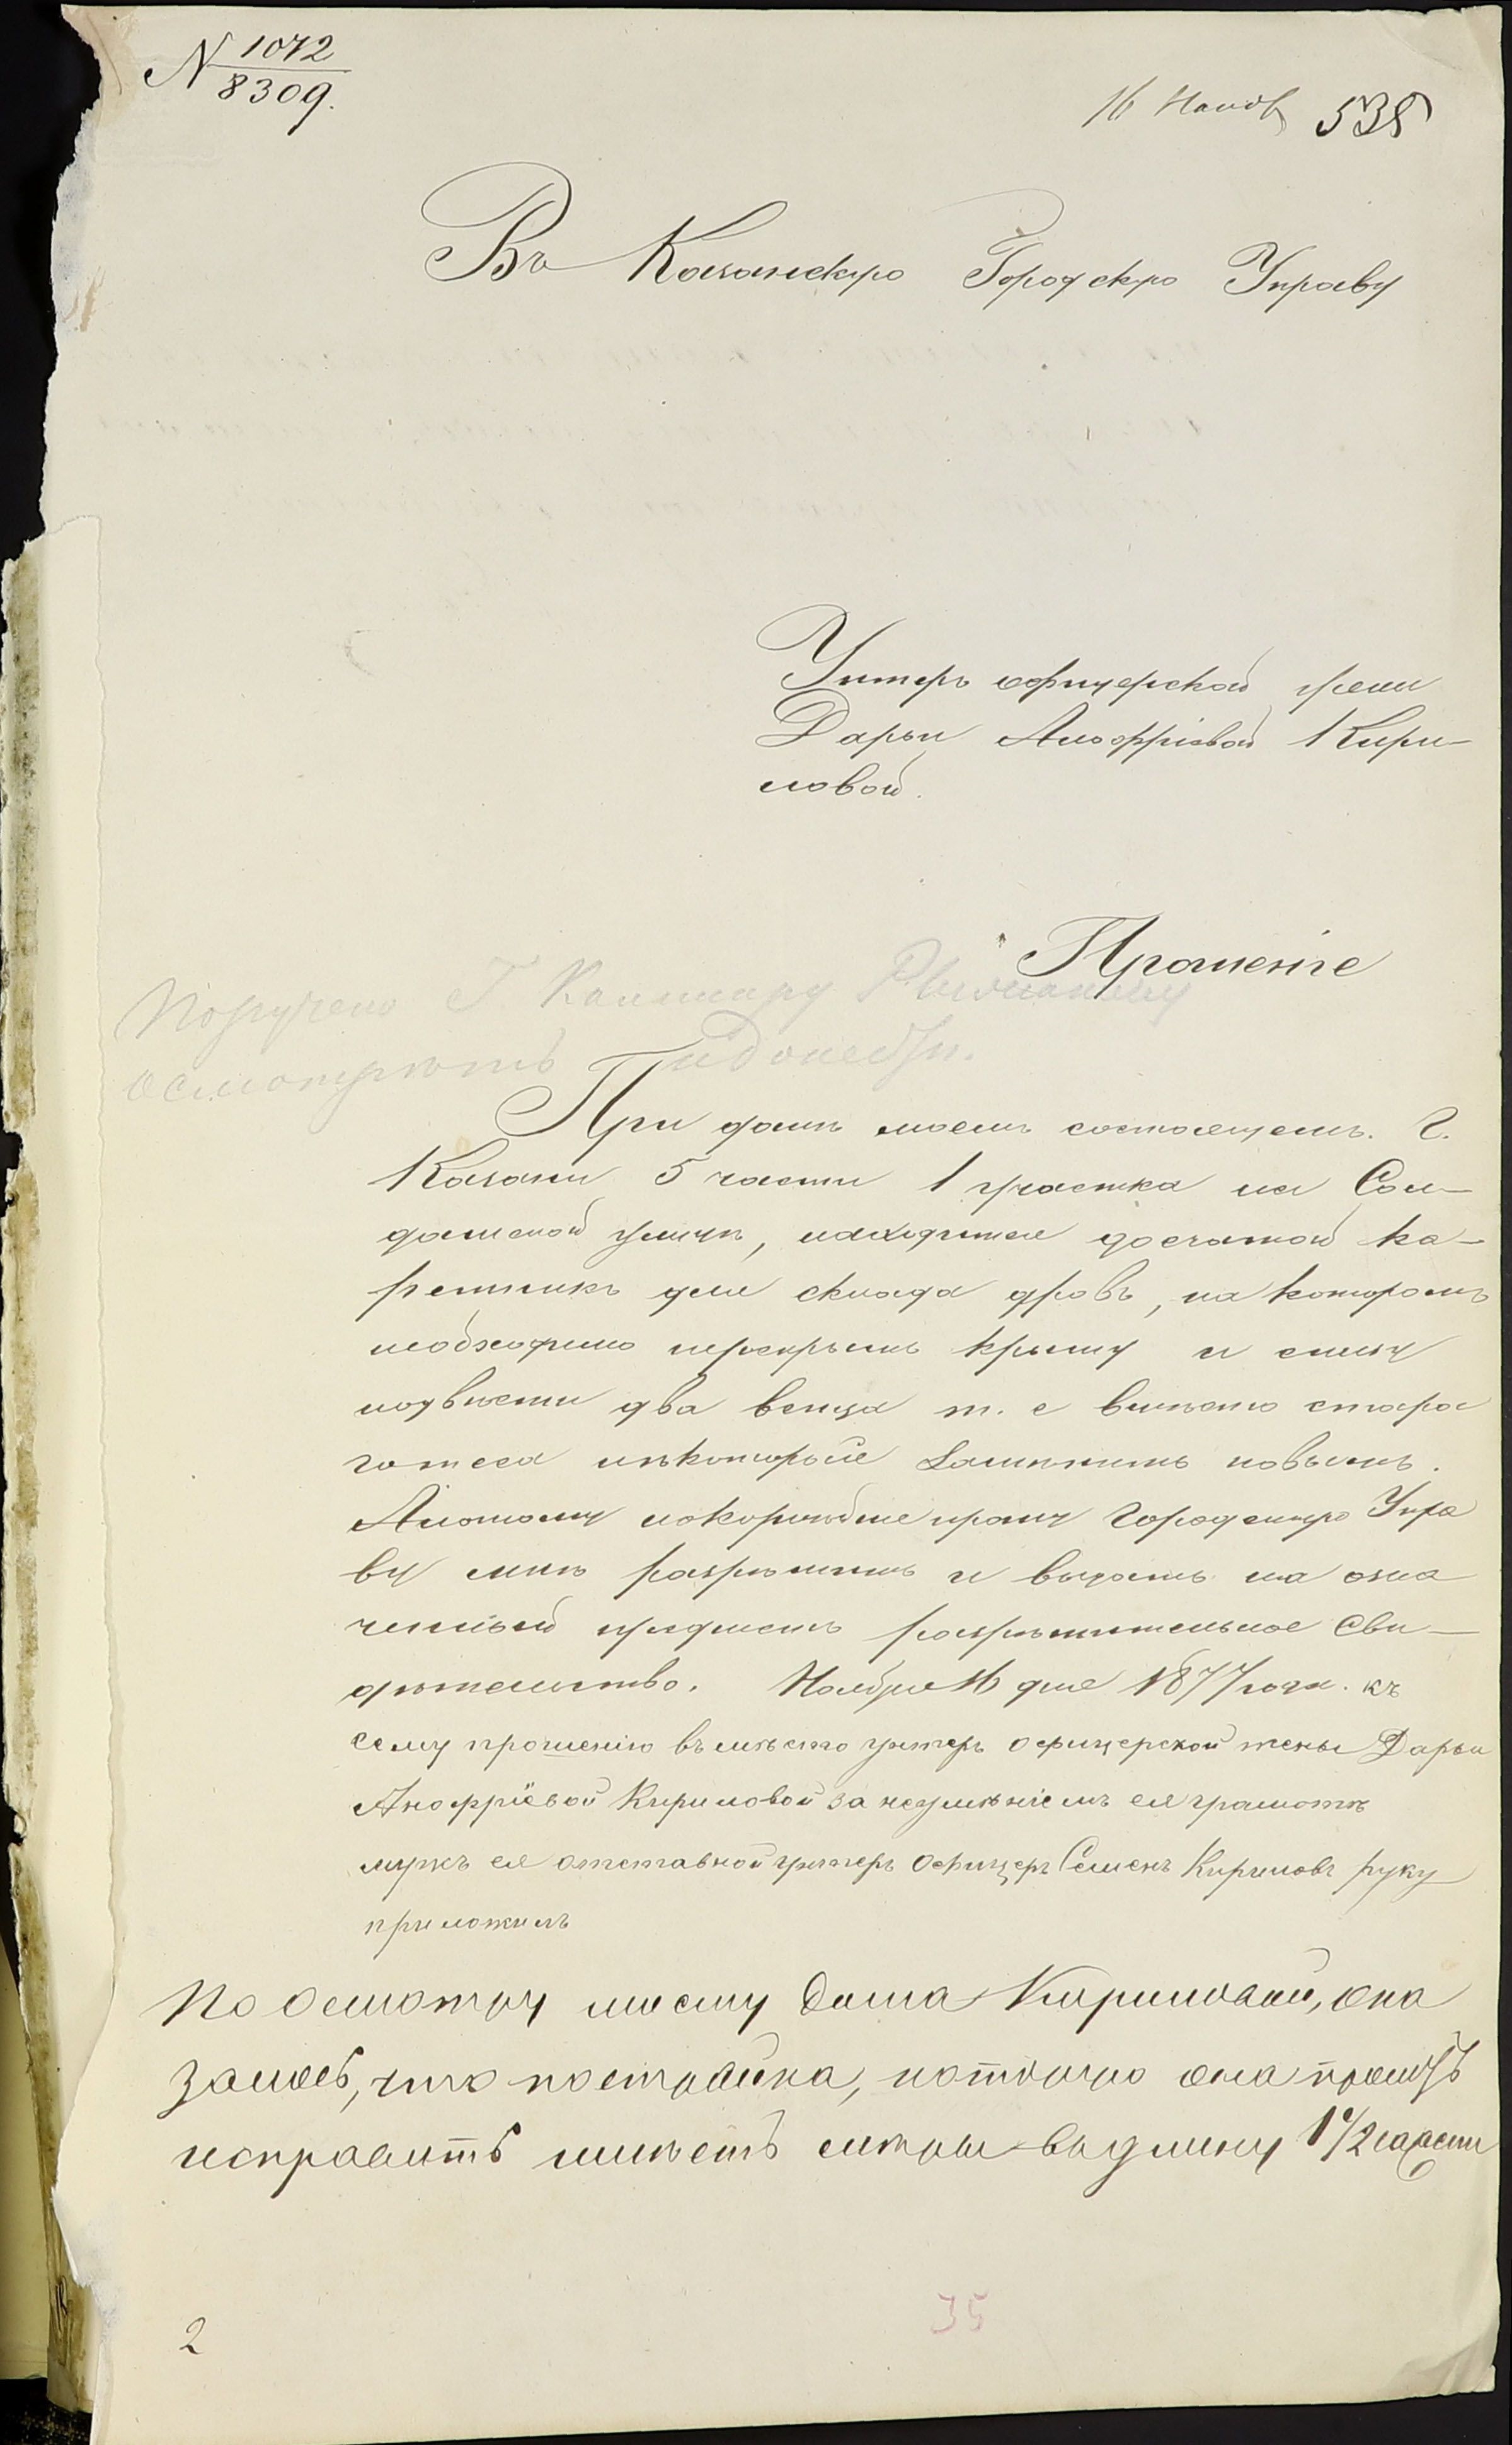 N 1072
8309.
16 Нояб 538
Въ Казанскую Городскую Управу
Унтеръ офицерской жены
Дарьи Аноффріевой Кири-
ловой.
Прошеніе
Поручено Г. Каммисару
осмотрѣть и донести.
При домѣ моемъ состоящемъ. г.
Казани 5 части 1 участка на Сол-
датской улицѣ, находится досчатой ка-
ретникъ для склада дровъ, на которомъ
необходимо перекрыть крышу и снизу
подвѣсти два венца т. е вмѣсто старо
го лѣса нѣкоторые замѣнить новымъ.
А потому покорнѣйше прошу Городскую Упра
ву мнѣ разрѣшить и выдать на озна
ченный предметъ разрѣшительное сви-
дѣтельство. Ноября 16 дня 1877 года. къ
сему прошенію въмѣсто унтеръ офицерской жены Дарьи
Аноффріевой Кириловой за неумѣніемъ ея грамотѣ
мужъ ея отставной унтеръ офицеръ Семенъ Кириловъ руку
приложилъ
По осмотру моему дома Кириловой, ока
залось, что постройка, которую она проситъ
исправить имѣетъ мѣры въ длину 1 1/2 сажени
2
35